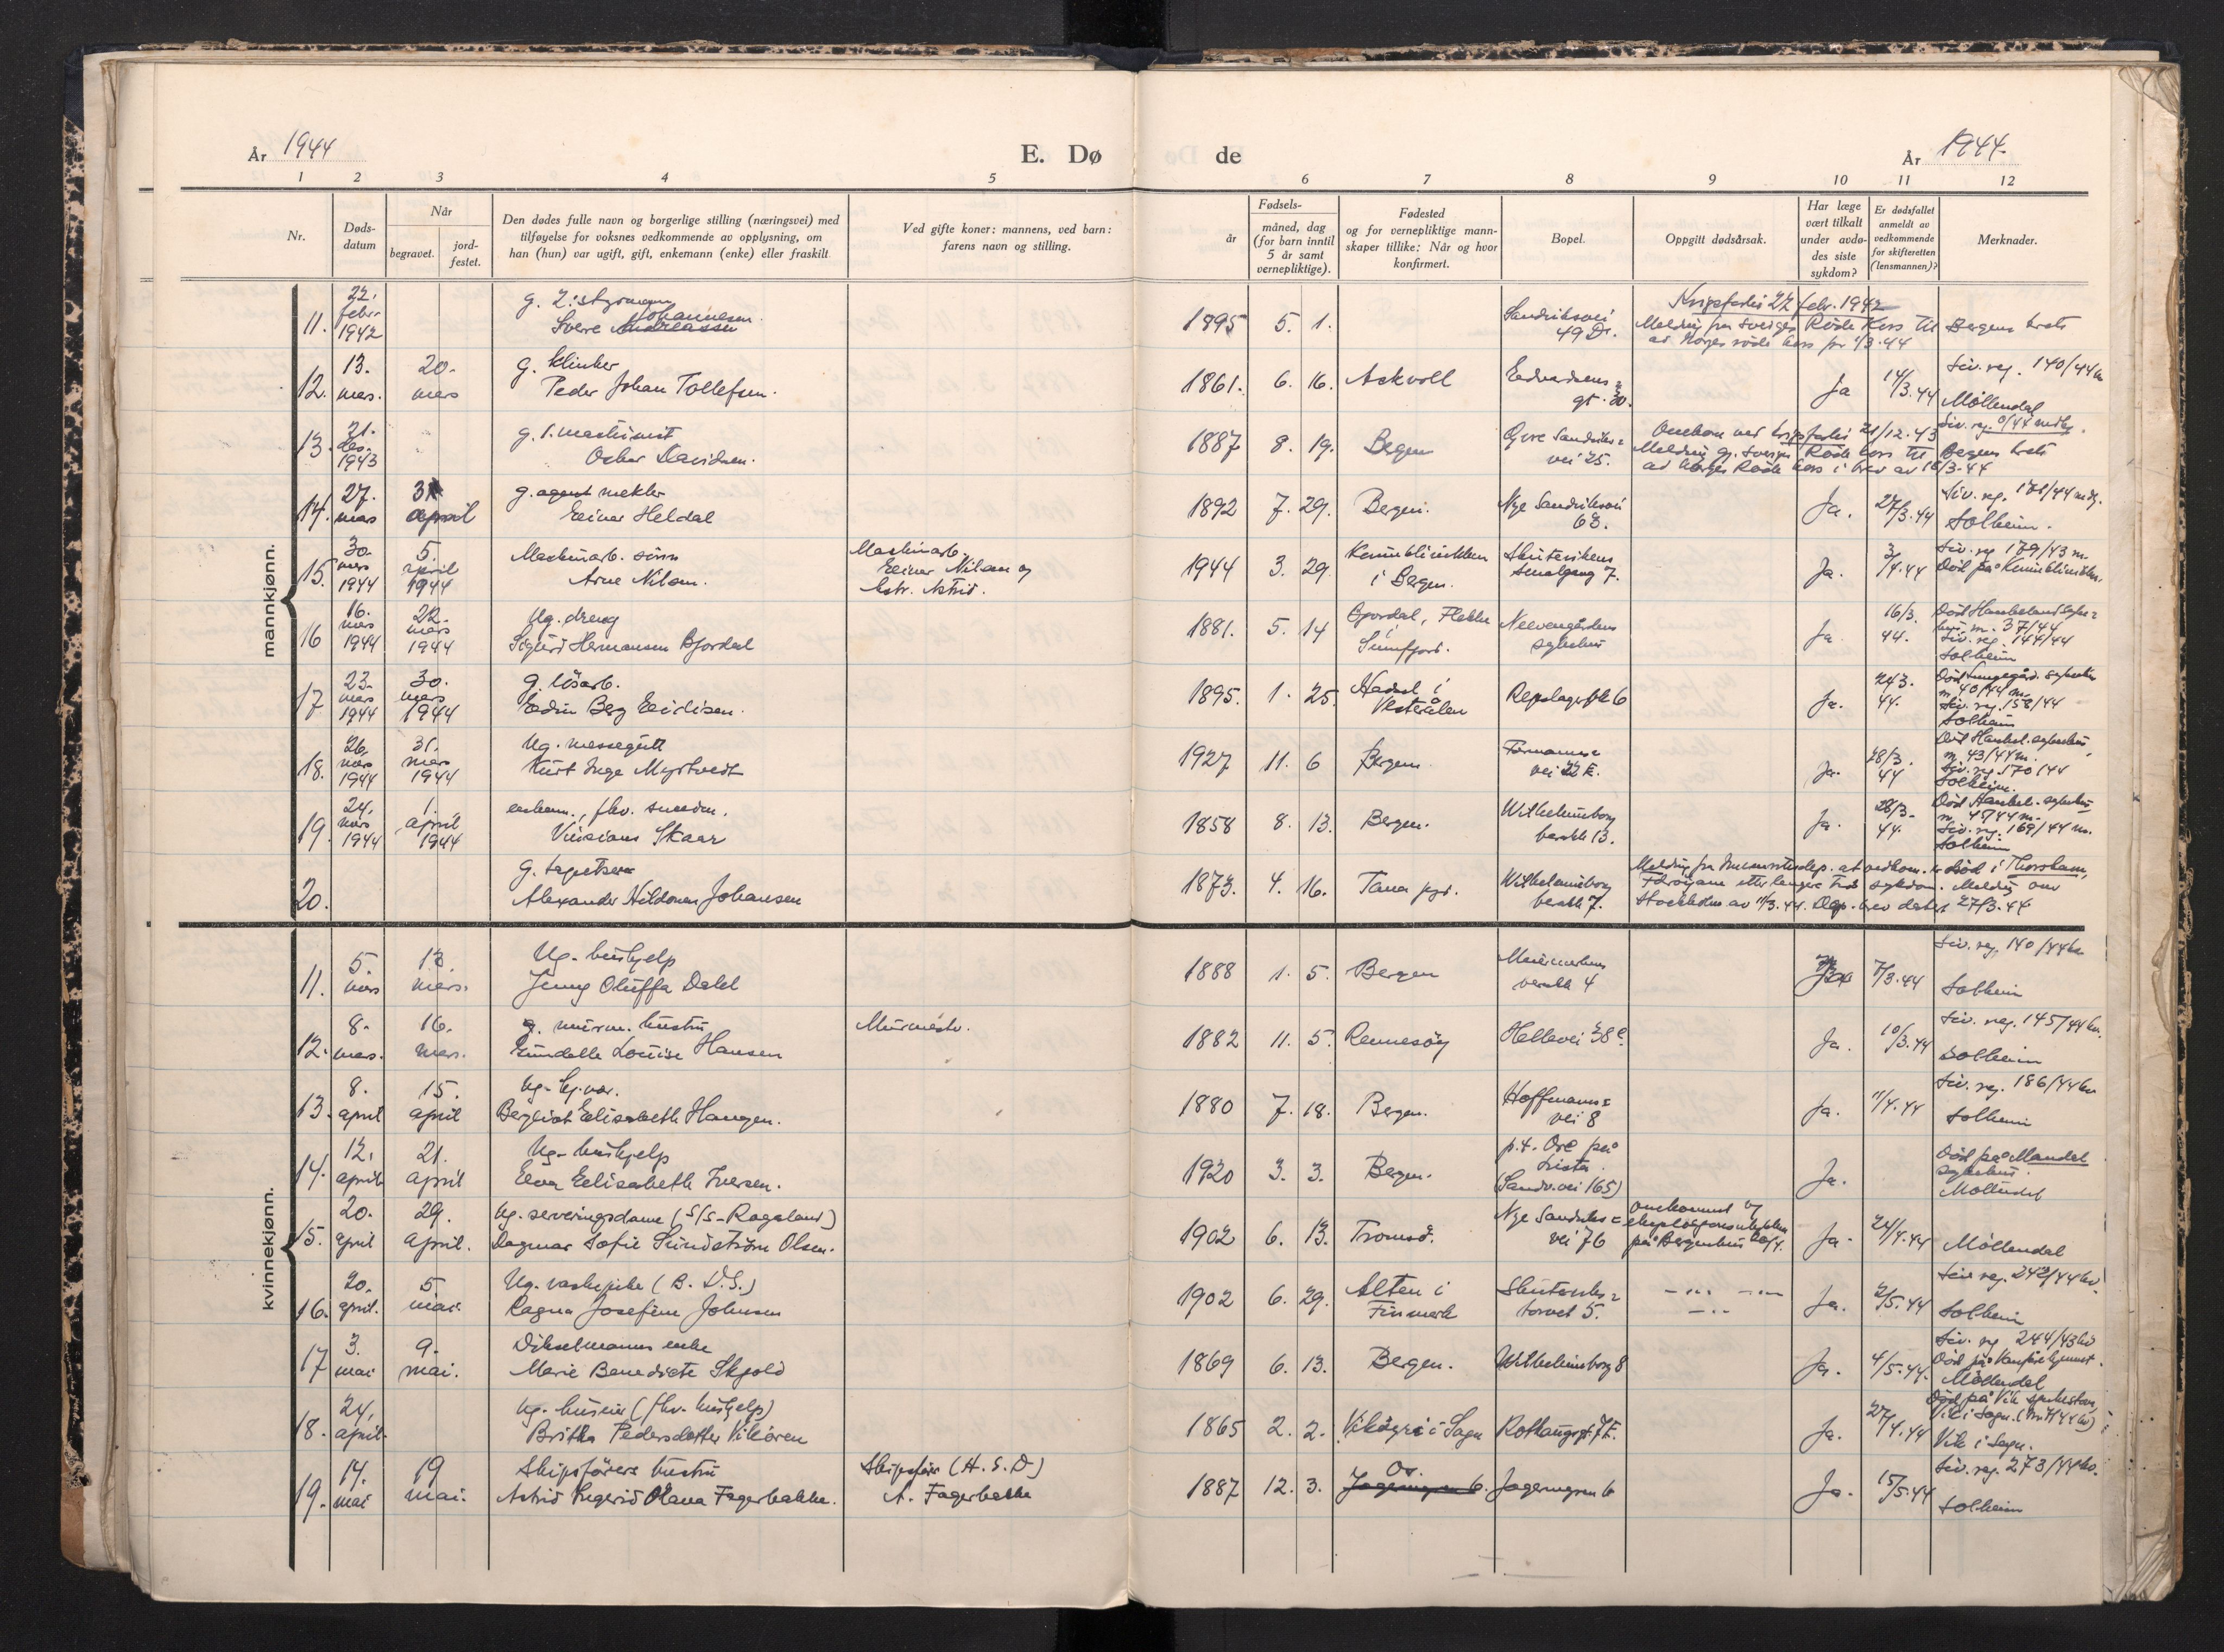 År 1944
E. Dø de
År 1944.
1 2 3 4 5 6 7 8 9 10 11 12
Nr.
Døds-
datum
Når
begravet.
jord-
festet.
Den dødes fulle navn og borgerlige stilling (næringsvei) med
tilføyelse for voksnes vedkommende av opplysning, om
han (hun) var ugift, gift, enkemann (enke) eller fraskilt
Ved gifte koner: mannens, ved barn:
farens navn og stilling.
Fødsels-
år
måned, dag
(for barn inntil
5 år samt
vernepliktige).
Fødested
og for vernepliktige mann-
skaper tillike: Når og hvor
konfirmert.
Bopel.
Oppgitt dødsårsak.
Har læge
vært tilkalt
under avdø-
des siste
sykdom?
Er dødsfallet
anmeldt av
vedkommende
for skifteretten
(lensmannen)?
Merknader.
mannkjønn.
11. 22. febr. 1942
g. 2. styrmann
Sverre Andreassen Johannesen
1895 5. 1.
Sandviksvei
49 D.
Krigsforlis 22 febr. 1942
Melding fra Sveriges Røde Kors til
Norges røde kors 1/3.44
Bergens krets
12. 13. mars. 20. mars
g. klinker
Peder Johan Tollefsen.
1861. 6. 16. Askvoll
Edvardsens=
gt. 30.
Ja 14/3.44
Siv. reg. 140/44
Möllendal
13. 21. des. 1943
g. 1. maskinist
Oskar Davidsen.
1887 8. 19. Bergen
Øvre Sandviks=
vei 25.
Omkom ved krigsforlis 21/12.43
Melding gj. Sveriges Røde kors til
Norges Røde kors i brev av 16/3-44
Bergens krets
14. 27. mars 31 april
g. agent mekler
Einar Heldal
1892 7. 29. Bergen.
Nye Sandviksvei
63.
Ja. 27/3.44
Siv. reg. 171/44
Solheim.
15. 30. mars 1944 5. april 1944
Maskinarb. sønn
Arne Nilsen.
Maskinarb.
Einar Nilsen og
Astrid.
1944 3. 29.
Kvinneklinikken
i Bergen.
Skutevikens
smalgang 7.
Ja. 3/4.44
Siv. reg 179/43 m.
Död på Kvinneklinikken.
16 16. mars 1944 22. mars 1944
Ug. dreng
Sigurd Hermansen Bjordal
1881. 5. 14
Bjordal,
Sunnfjord.
Neevengårdens
sykehus
Ja 16/3. 44.
Död Haukeland syke=
hus m. 37/44
Siv. reg 144/44
Solheim
17 23. mars 1944 30. mars 1944
g. løsarb.
Edin Berg Eidisen.
1895. 1. 25.
Hadsel i
Vesterålen
Repslagergt 6
Ja. 24/3. 44.
Död Lungegård. sykehus
m. 40/44 m.
Siv. reg. 158/44
Solheim
18. 26. mars 1944 31. mars 1944
Ug. messegutt
Kurt Inge Myrtvedt
1927 11. 6 Bergen.
Formanns=
vei 22 E.
Ja. 28/3. 44
Död Haukel. sykehus,
m. 43/44 m.
Siv. reg. 170/44
Solheim.
19. 24. mars 1944 1. april 1944
enkem., fhv. snedm.
Skaar
1858 8. 13. Bergen.
Wilhelmsborg
barakk 13.
Ja. 28/3- 44.
Död Haukel. sykehus
m. 45/44 m.
Siv. reg. 169/44 m.
Solheim
20.
g. tapetserer
Alexander Hildonen Johansen
1873. 4. 16. Tana
Wilhelmsborg
barakk 7.
Melding fra at vedkom. er død i Thorshavn,
Færøyane etter lengere tids sykdom. Melding over
Stockholm av 11/3.44. Dep. brev datert 27/3.44
kvinnekjønn.
11. 5. mars 13. mars.
Ug. hushjelp
Jenny Oluffa Dahl
1888 1. 5. Bergen
barakk 4
Ja 7/3.44
Siv. reg. 140/44
Solheim
12. 8. mars. 16. mars.
g. murm. hustru
Louise Hansen
Murmester.
1882 11. 5. Rennesöy
Hellevei 38 c.
Ja. 10/3.44
Siv. reg. 145/44 kv.
Solheim
13. 8. april 15. april
Ug.
Bergliot Elisabeth Haugen.
1880 7. 18. Bergen.
Hoffmanns=
vei 8
Ja. 11/4.44
Siv. reg. 186/44 kv
Solheim
14. 12. april 21. april
Ug. hushjelp
Elva Elisabeth Iversen.
1920 3. 3. Bergen.
p.t. Ore på
Lista.
(Sandv.vei 165)
Ja.
Död på Mandal
sykehus.
Möllendal
15. 20. april 29. april.
Ug. serveringsdame (S/S-Rogaland)
Dagmar Sofie Sundström Olsen.
1902 6. 13. Tromsö.
Nye Sandviks=
vei 76
omkommet v
eksplosjonsulykken
på Bergenhus 20/4.
Ja. 24/4.44
Möllendal
16. 20. april. 5 mai.
Ug. vaskepike (B. D. S.)
Ragna Josefine Johnsen
1902 6. 29.
Alten i
Finmark
Skuteviks=
torvet 5.
Ja. 2/5.44
Siv. reg. 242/44 kv.
Solheim
17 3. mai 9. mai.
Dikselmanns enke
Marie Benedicte Skjold
1869 6. 13. Bergen.
Wilhelmsborg 8
Ja. 4/5.44.
Siv. reg 244/43 kv
Möllendal
18. 24. april.
Ug. huseier (fhv. hushjelp)
Britha Pedersdotter Vikören
1865 2. 2. Viköyri i Sogn
Rothaugsgt. 7 E.
Ja. 27/4.44
Död på Vik sykestue,
Vik i Sogn.
Vik i Sogn.
19. 14. mai 19 mai.
Skipsförers hustru
Astrid Ingerid Olava Fagerbakke.
Skipsförer (H. S. D)
A. Fagerbakke
1887 12. 3.
Os.
Jægermyren 6.
Jægermyren 6
Ja. 15/5.44
Siv. reg. 273/44 kv.
Solheim